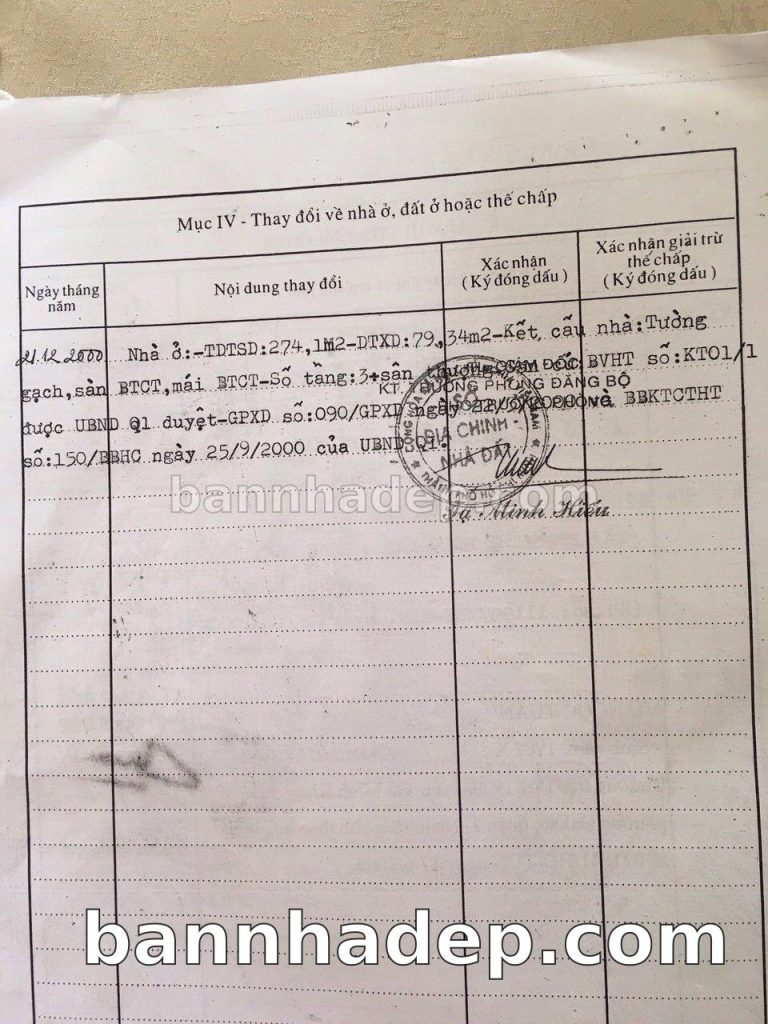 Mục IV - Thay đổi về nhà ở, đất ở hoặc thế chấp
Ngày tháng năm
Nội dung thay đổi
Xác nhận
( Ký đóng dấu )
Xác nhận giải trừ
thế chấp
( Ký đóng dấu )
21.12.2000 Nhà ở:-TDTSD:274,1M2-DTXD:79,34m2-Kết cấu nhà:Tường
gạch,sàn BTCT,mái BTCT-Số tầng:3+sân thượng BVHT số:KT01/1
được UBND Q1 duyệt-GPXD số:090/GPXD ngày 22/ /2000 và BBKTCTHT
số:150/BBHC ngày 25/9/2000 của UBND Q1.
KT. TRƯỞNG PHÒNG ĐĂNG BỘ
SỞ
ĐỊA CHÍNH -
NHÀ ĐẤT
Tạ Minh Kiếu
bannhadep.com
bannhadep.com